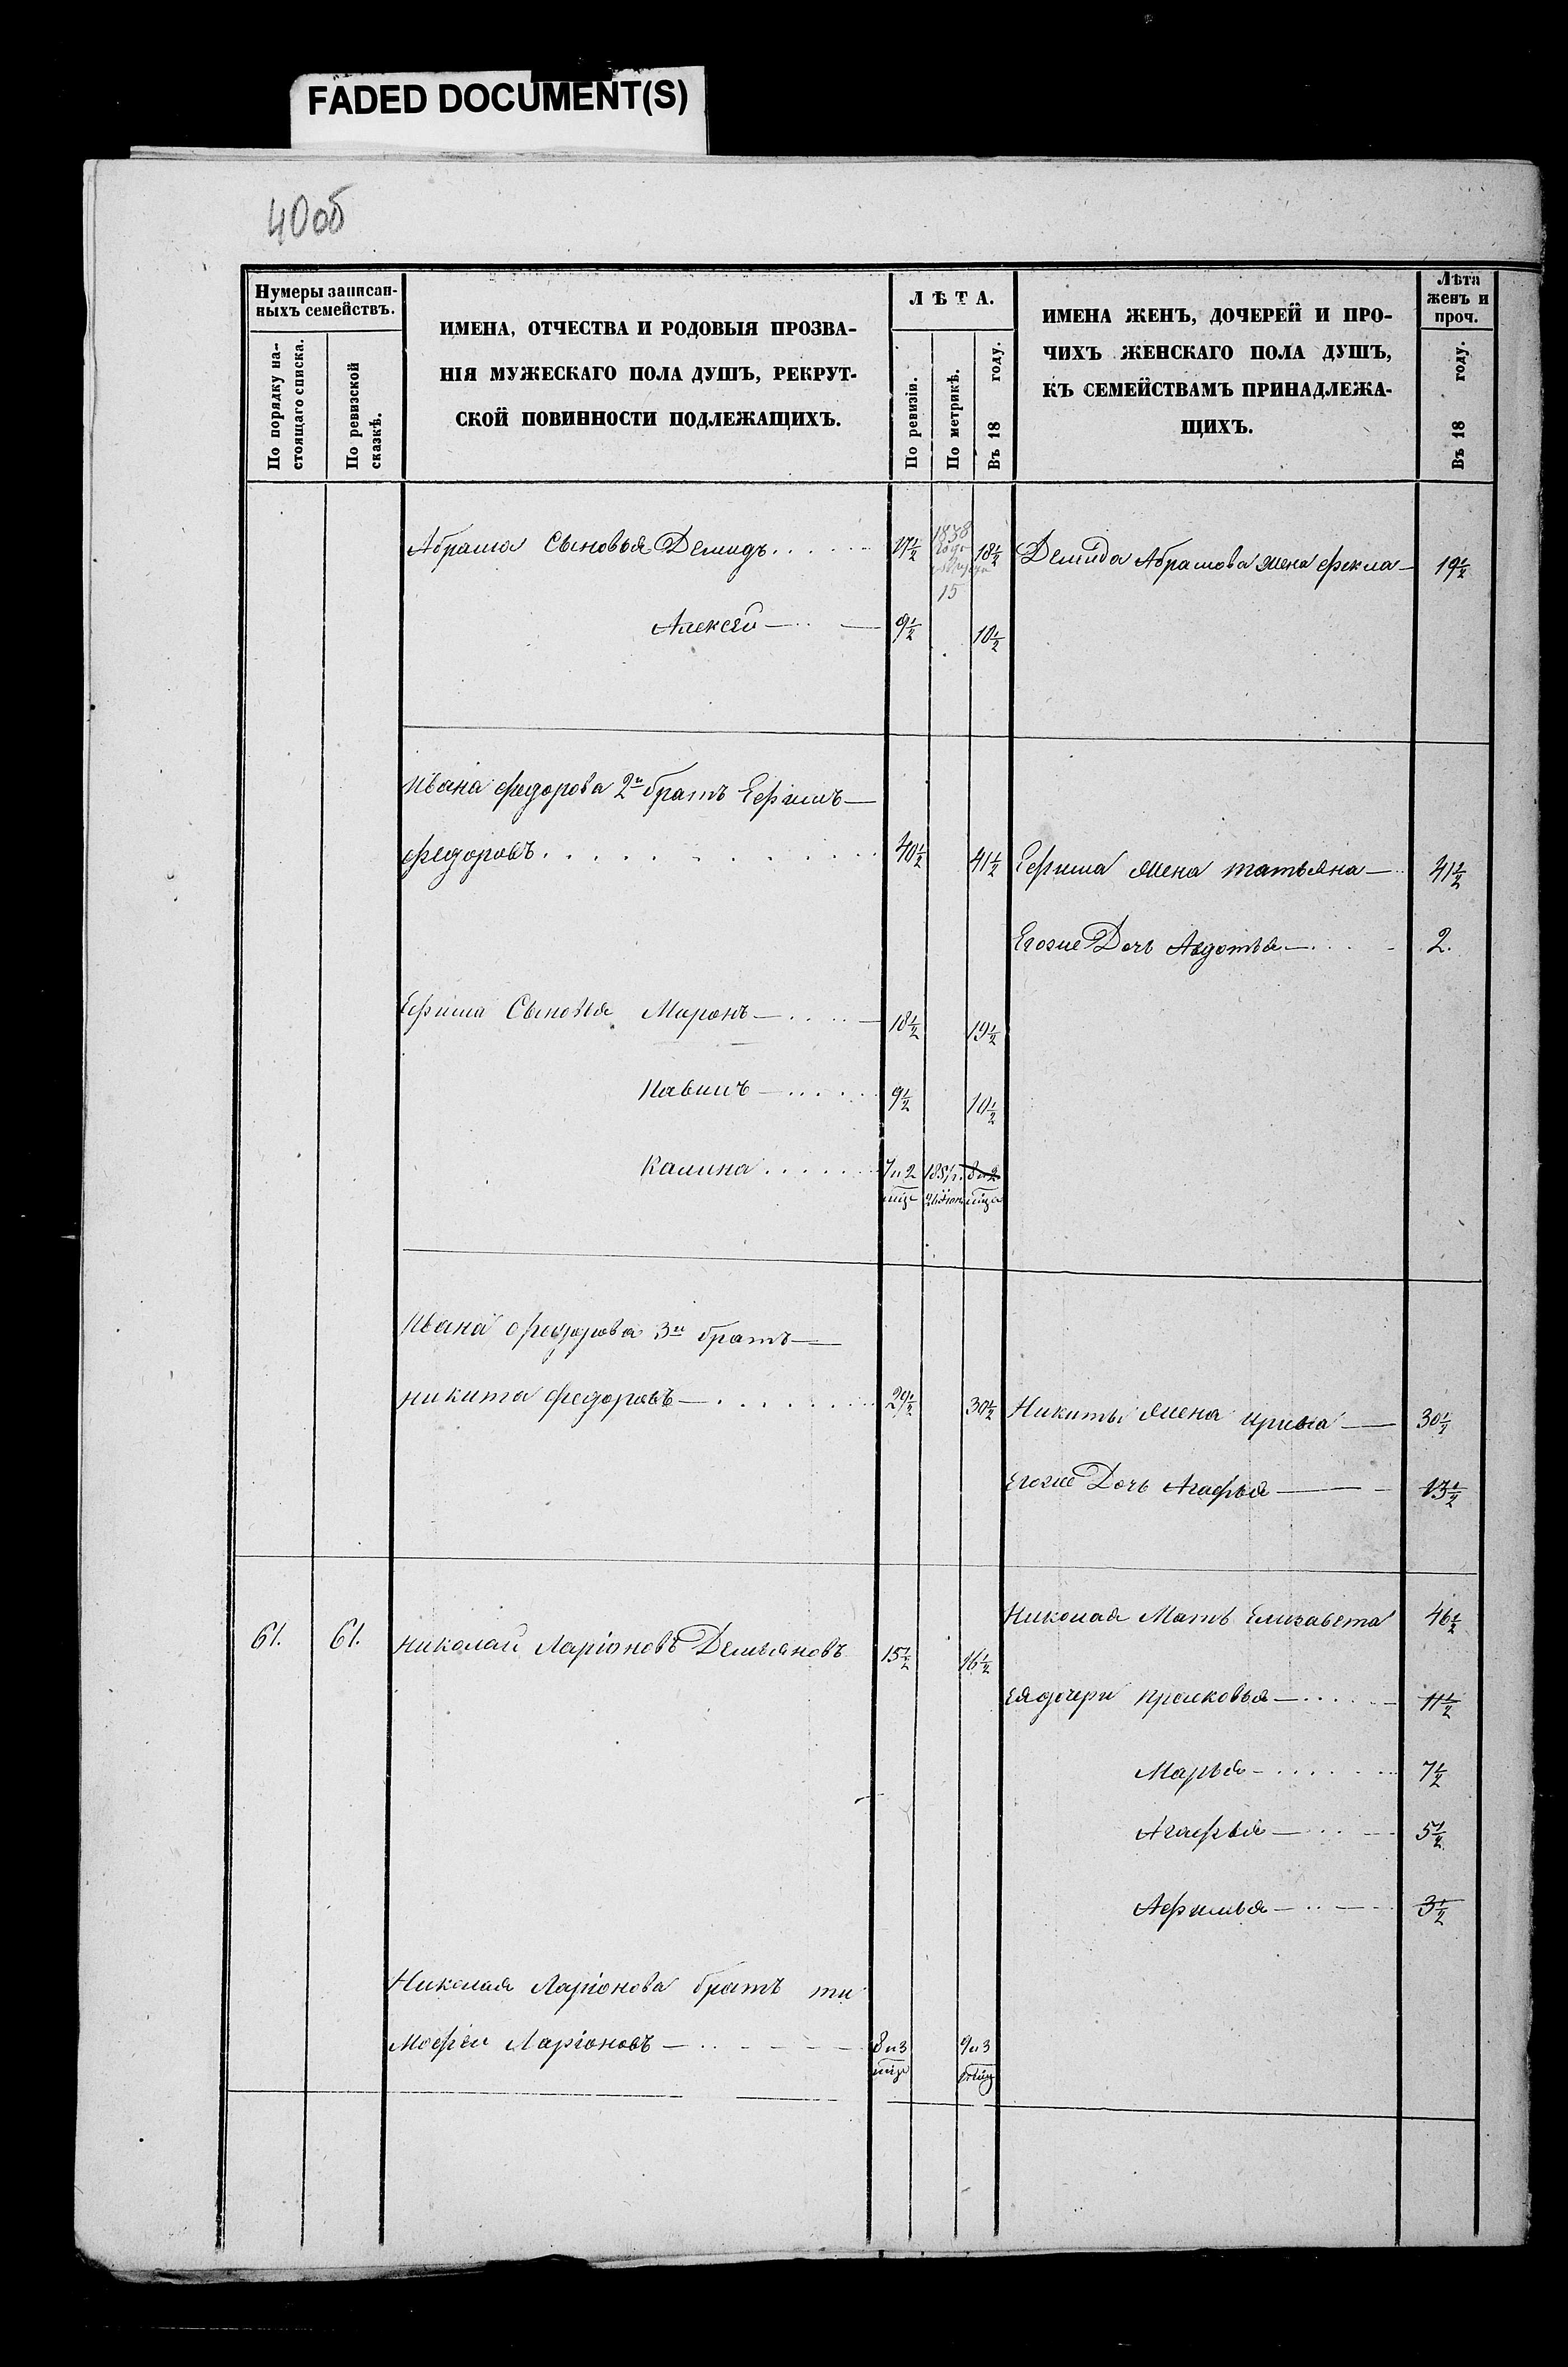 FADED DOCUMENT(S)
40об
Нумеры записан-
ныхъ семействъ.
По порядку на-
стоящаго списка.
По ревизской
сказкѣ.
ИМЕНА, ОТЧЕСТВА И РОДОВЫЯ ПРОЗВА-
НІЯ МУЖЕСКАГО ПОЛА ДУШЪ, РЕКРУТ-
СКОЙ ПОВИННОСТИ ПОДЛЕЖАЩИХЪ.
ЛѢТА.
По ревизіи.
По метрикѣ.
Въ 18 году.
ИМЕНА ЖЕНЪ, ДОЧЕРЕЙ И ПРО-
ЧИХЪ ЖЕНСКАГО ПОЛА ДУШЪ,
КЪ СЕМЕЙСТВАМЪ ПРИНАДЛЕЖА-
ЩИХЪ.
Лѣта
женъ и
проч.
Въ 18 году.
Абрама Сыновья Демидъ 17½ 1838 года 15 18½ Демида Абрамова жена фекла 19½
Алексей 9½ 10½
Ивана федорова 2й братъ Ефимъ
федоровъ 40½ 41½ Ефима жена татьяна 41½
Егоже Дочь Авдотья 2.
Ефима Сыновья Миронъ 18½ 19½
Павилъ 9½ 10½
Калина 7и2 1851г. 8и2
Ивана федорова 3й братъ
никита федоровъ 29½ 30½ Никиты жена ирина 30½
Егоже Дочь Агафья 13½
61. 61. николай Ларіоновъ Демьяновъ 15½ 16½ Николая Мать Елизавета 46½
Ея дочери прасковья 11½
Марья 7½
Агафья 5½
Афимья 3½
Николая Ларіонова братъ ти
мофеи Ларіоновъ 8и3 9и3